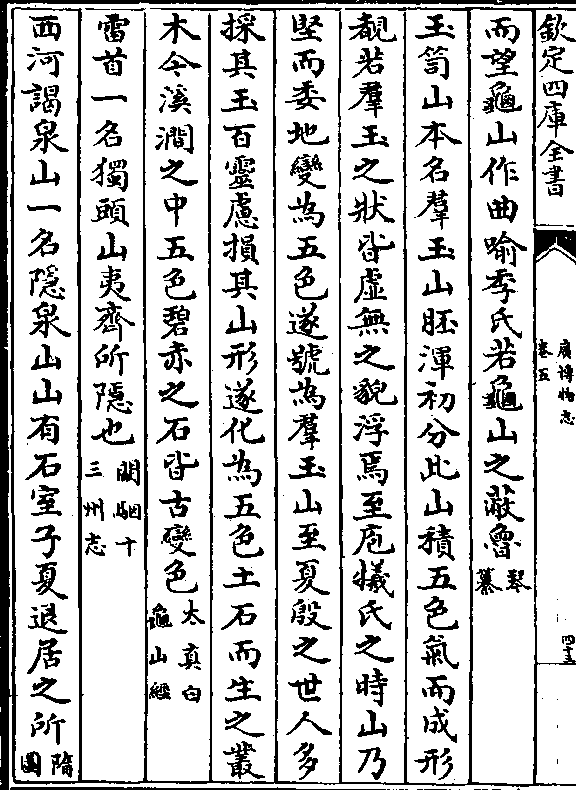 欽定四庫全書
廣博物志
卷五
四十五
而望龜山作曲喻季氏若龜山之蔽魯琴
纂
玉笥山本名羣玉山胚渾初分此山積五色氣而成形
覩若羣玉之狀皆虛無之貌浮焉至庖犧氏之時山乃
堅而委地變為五色遂號為羣玉山至夏殷之世人多
採其玉百靈慮損其山形遂化為五色土石而生之叢
木今溪澗之中五色碧赤之石皆古變色太真白
龜山經
雷首一名獨頭山夷齊所隱也闞駰十
三州志
西河謁泉山一名隱泉山山有石室子夏退居之所隋
圖